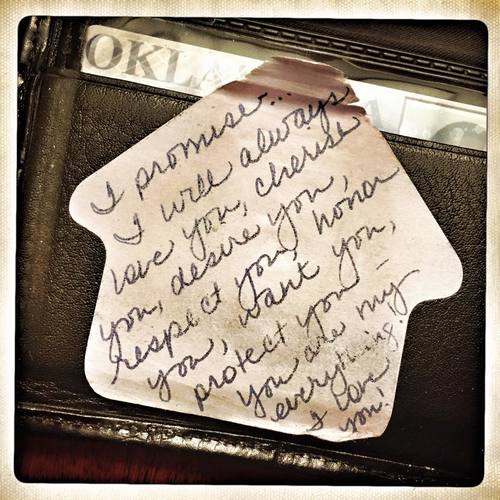 OKLA
I promise...
I will always
love you, cherish
you, desire you,
respect you, honor
you, want you,
protect you –
you are my
everything.
I love
you!